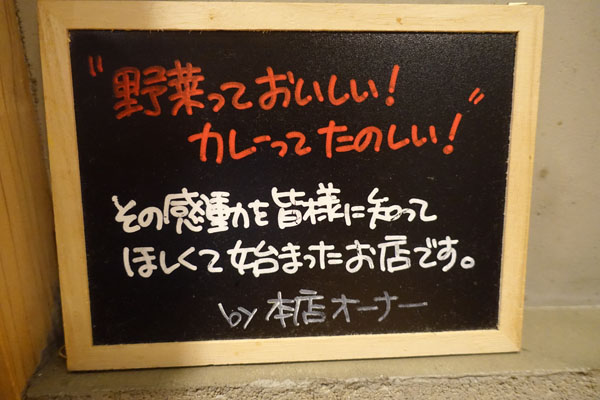 "野菜っておいしい!
カレーってたのしい!"
その感動を皆様に知って
ほしくて始まったお店です。
by 本店オーナー